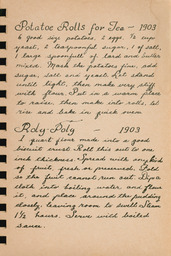 Potatoe Rolls for Tea - 1903
6 good size potatoes, 2 eggs, ½ cup
yeast, 2 teaspoonful sugar, 1 of salt,
1 large spoonfull of lard and butter
mixed. Mash the potatoes fine, add
sugar, salt and yeast. Let stand
until light, then make very stiff
with flour. Put in a warm place
to raise, then make into rolls, let
rise and bake in quick oven.
Roly-Poly - 1903
1 quart flour made into a good
biscuit crust. Roll this out to one
inch thickness. Spread with any kind
of fruit, fresh or preserved. Fold
so the fruit cannot run out. Dip a
cloth into boiling water, and flour
it, and place around the pudding
closely, leaving room to swell. Steam
1½ hours. Serve with boiled
sauce.